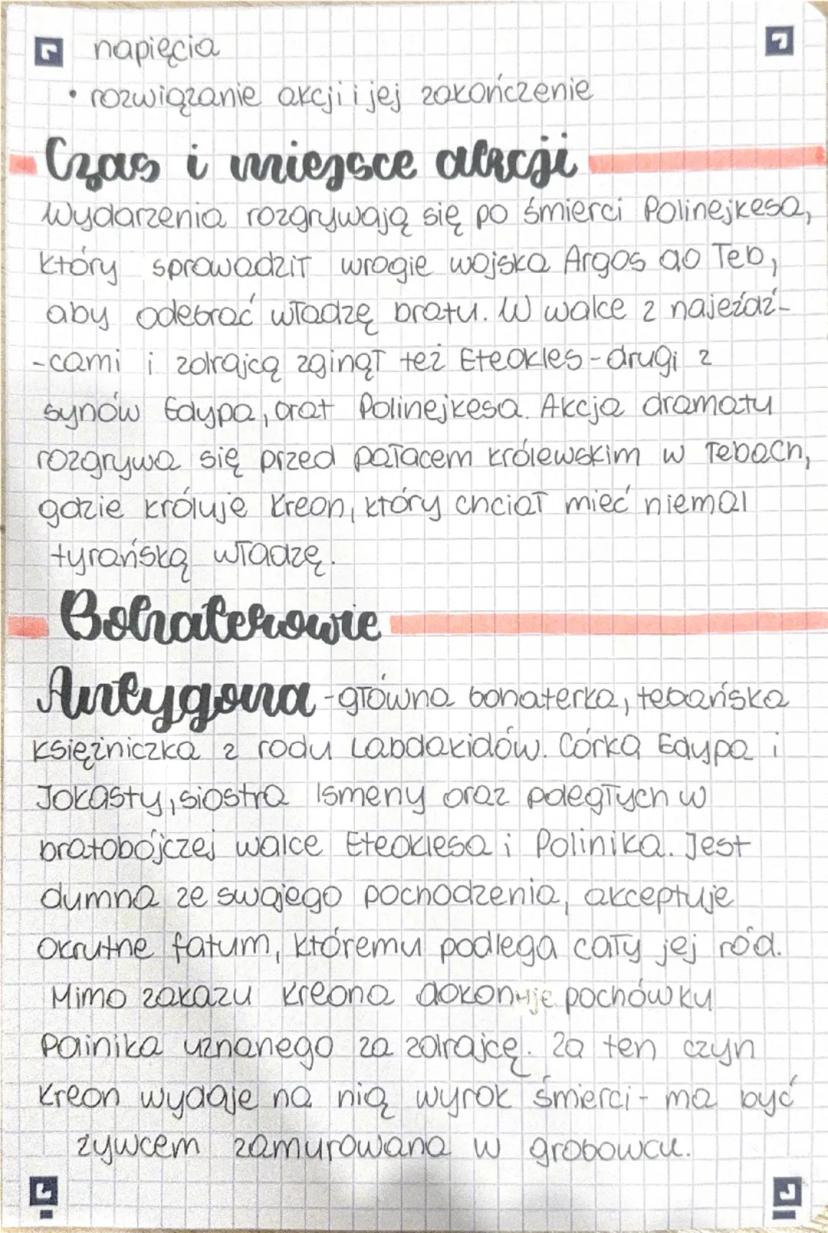 napięcia
• rozwiązanie akcji i jej zakończenie
Czas i miejsce akcji
Wydarzenia rozgrywają się po śmierci Polinejkesa,
który sprowadził wrogie wojska Argos do Teb,
aby odebrać władzę bratu. W walce z najeźdź-
-cami i zdrajcą zginął też Eteokles - drugi z
synów Edypa, brat Polinejkesa. Akcja dramatu
rozgrywa się przed pałacem królewskim w Tebach,
gdzie króluje Kreon, który chciał mieć niemal
tyrańską władzę.
Bohaterowie
Antygona - główna bohaterka, tebańska
księżniczka z rodu Labdakidów. Córka Edypa i
Jokasty, siostra Ismeny oraz poległych w
bratobójczej walce Eteoklesa i Polinika. Jest
dumna ze swojego pochodzenia, akceptuje
okrutne fatum, któremu podlega cały jej ród.
Mimo zakazu Kreona dokonuje pochówku
Polnika uznanego za zdrajcę. Za ten czyn
Kreon wydaje na nią wyrok śmierci - ma być
żywcem zamurowana w grobowcu.